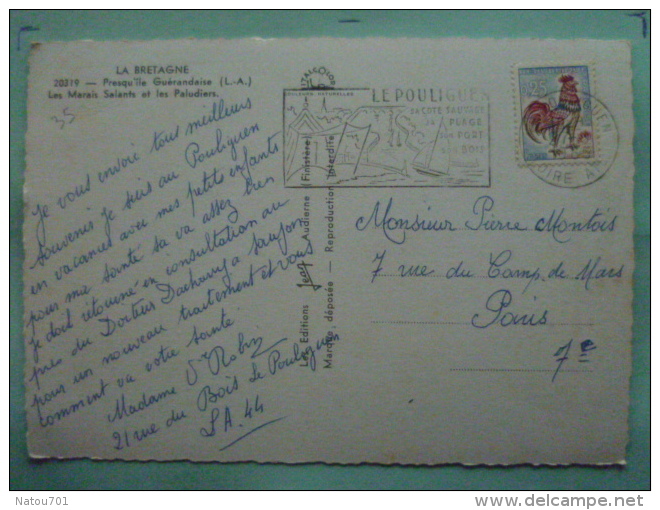 LA BRETAGNE
20219 — Presqu'île Guérandaise (L.-A.)
Les Marais Salants et les Paludiers.
35
Je vous envoie tout meilleurs
souvenirs je suis au Pouliguen
en vacances avec mes petits enfants
pour mie santé sa va assez bien
je dois retourné en consultation au
près du Docteur à saujon
pour un nouveau traitement et vous
comment va votre santé
Madame Vve Robin
21 rue du Bois le Pouliguen
LA. 44
Les Editions Jean Audierne (Finistère)
Marque déposée — Reproduction interdite
LE POULIGUEN
SA CÔTE SAUVAGE
SA PLAGE
SON PORT
SON BOIS
0,25
LOIRE A
Monsieur Pierre Montois
7 rue du Camp. de Mars
Paris
7e
Natou701
delcampe.net